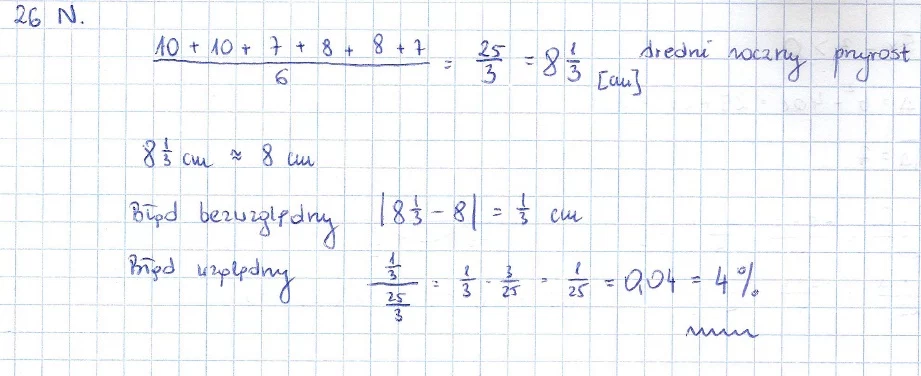 26 N.
\frac{10 + 10 + 7 + 8 + 8 + 7}{6} = \frac{25}{3} = 8 \frac{1}{3} [cm] średni roczny przyrost
8 \frac{1}{3} cm ≈ 8 cm
Błąd bezwzględny |8 \frac{1}{3} - 8| = \frac{1}{3} cm
Błąd względny \frac{\frac{1}{3}}{\frac{25}{3}} = \frac{1}{3} · \frac{3}{25} = \frac{1}{25} = 0,04 = 4%